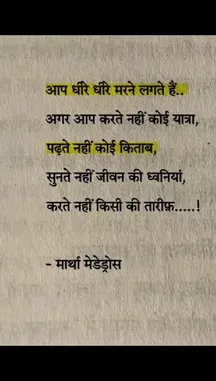 आप धीरे धीरे मरने लगते हैं..
अगर आप करते नहीं कोई यात्रा,
पढ़ते नहीं कोई किताब,
सुनते नहीं जीवन की ध्वनियां,
करते नहीं किसी की तारीफ़.....!
- मार्था मेडेड्रोस